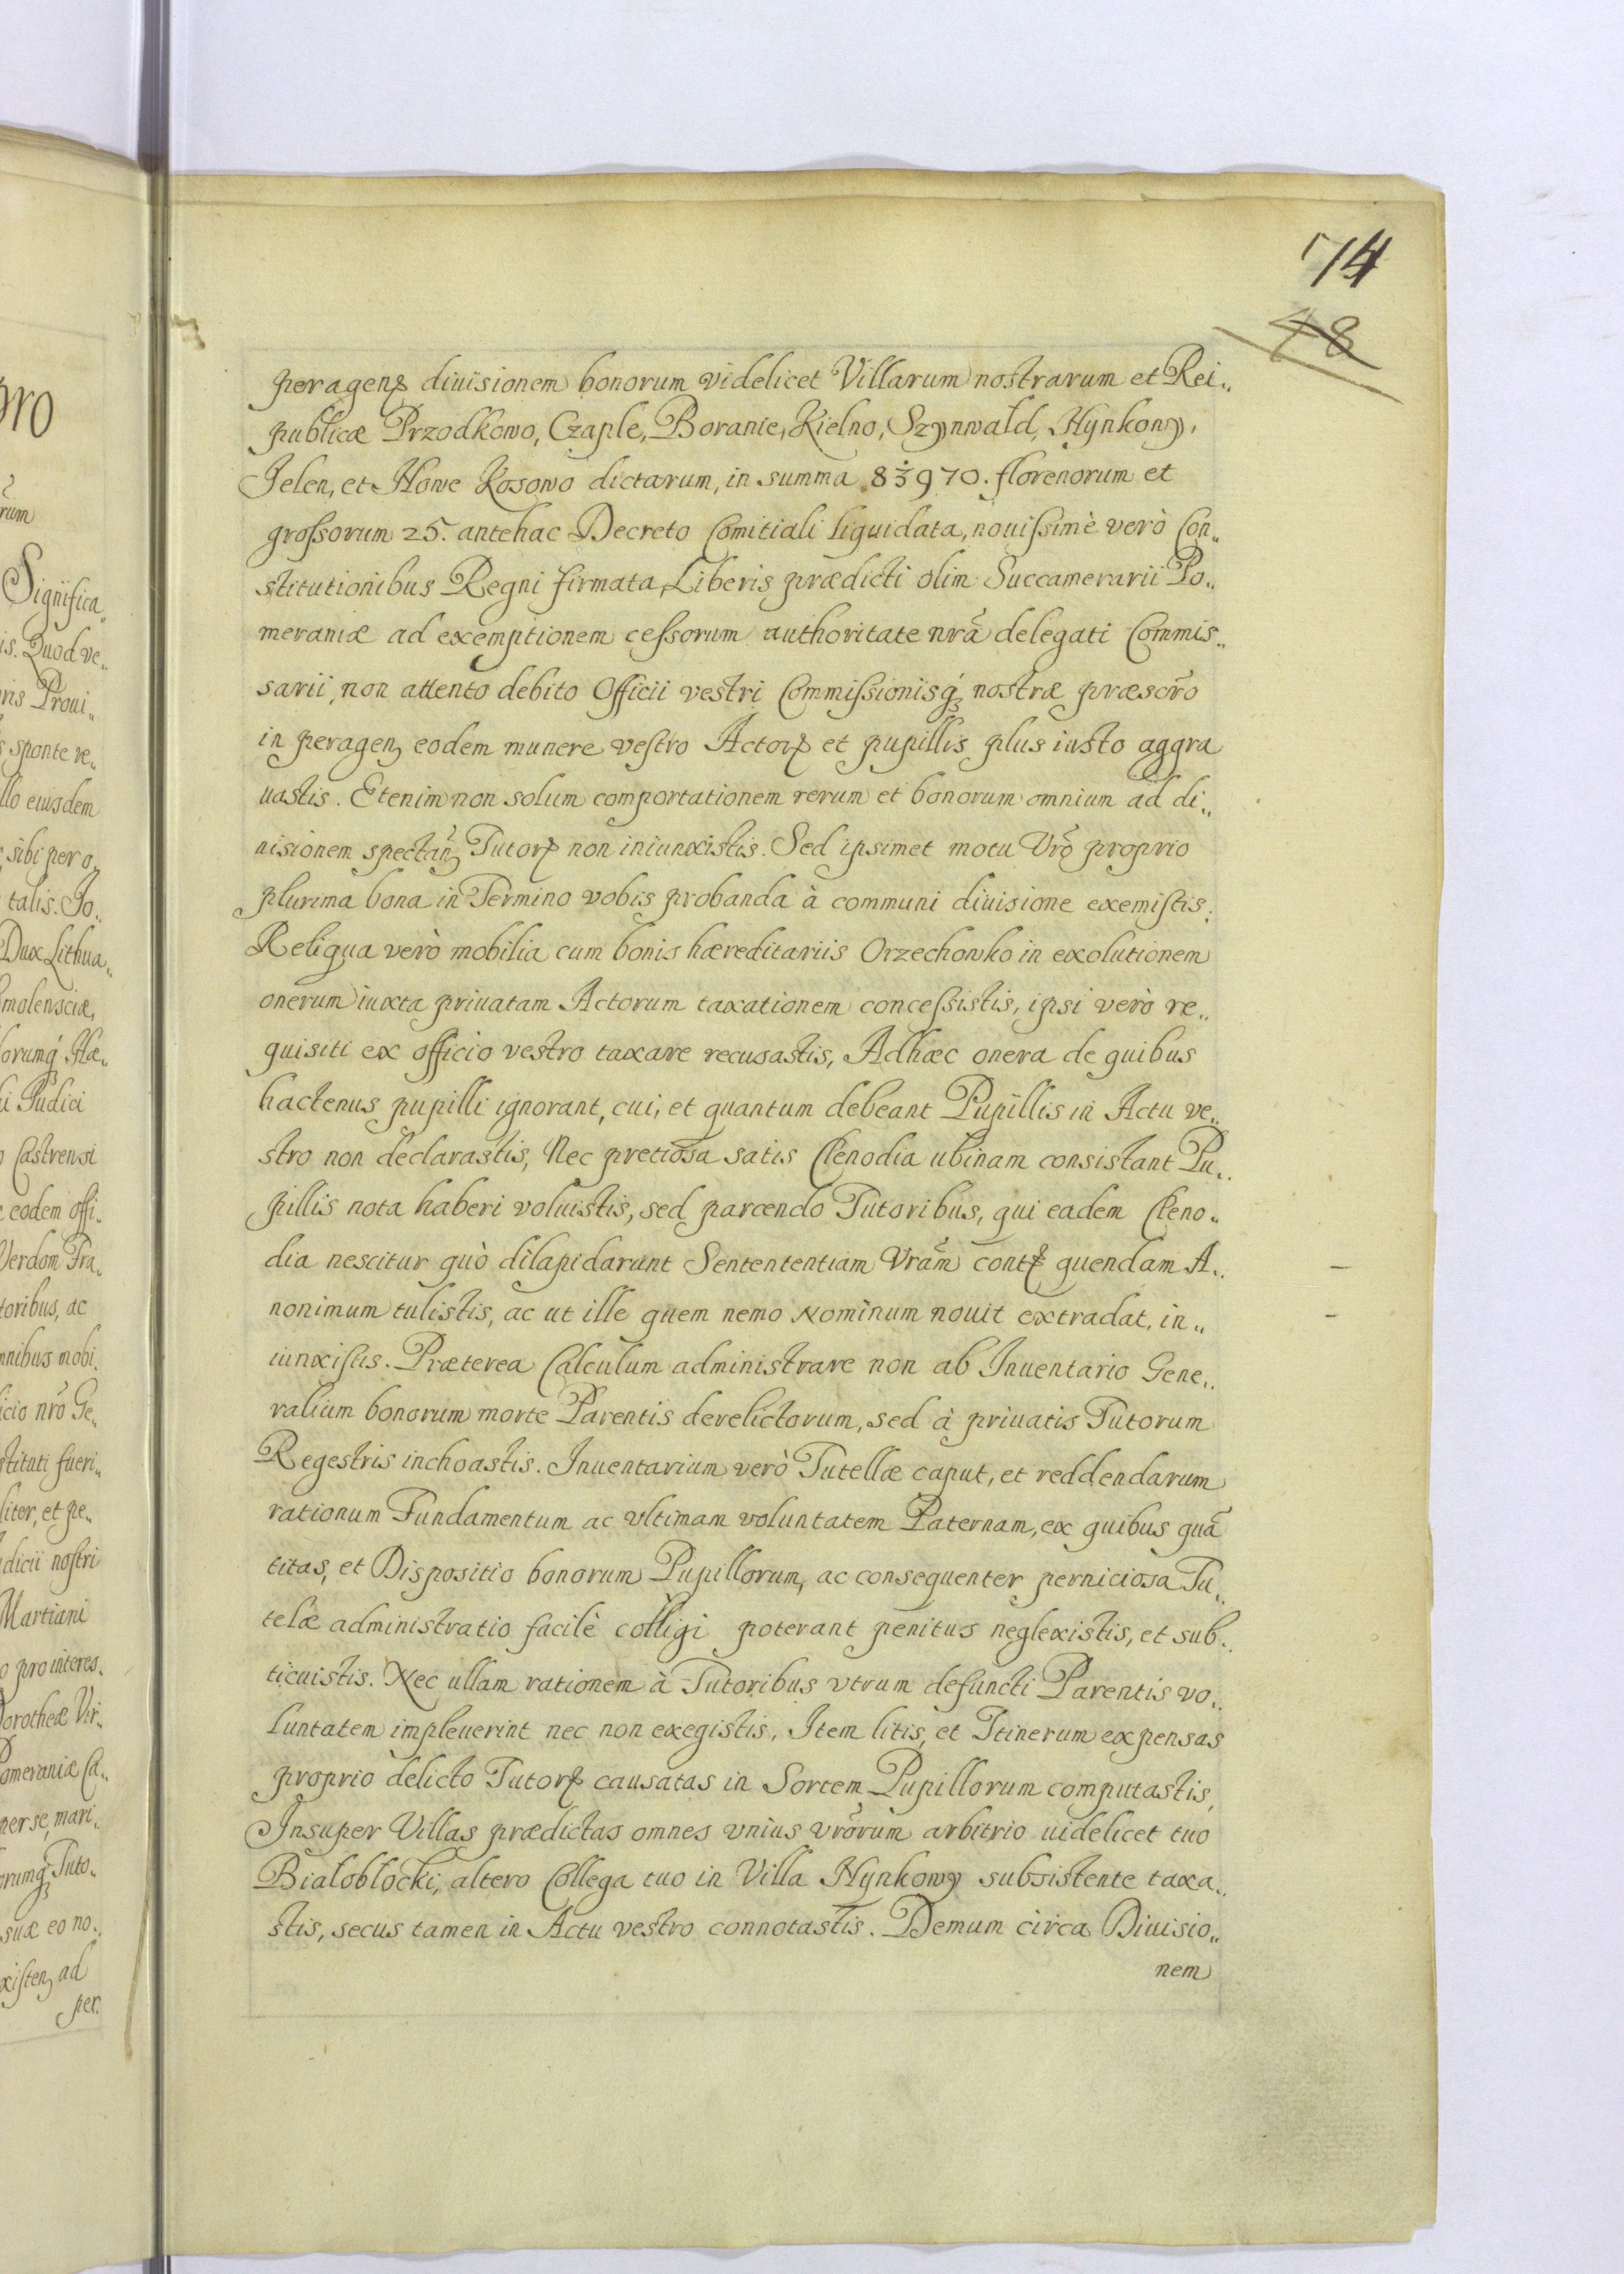 74
48
peragenꝝ diuisionem bonorum videlicet Villarum nostrarum et Rei„
publicæ Przodkowo, Czaple, Boranie, Kielno, Szynwałd, Hynkowy,
Jelen, et Nowe Kosowo dictarum, in summa 83970. florenorum et
grossorum 25. antehac Decreto Comitiali liquidata, nouissimè verò Con„
stitutionibus Regni firmata, Liberis prædicti olim Succamerarii Po„
meraniæ ad exemptionem cessorum authoritate nrã delegati Commis„
sarii, non attento debito Officii vestri Commissionisq́ꝫ nostræ præscr̃o
in peragenꝫ eodem munere vestro Actorꝝ et pupillis plus iusto aggra
uastis. Etenim non solum comportationem rerum et bonorum omnium ad di„
uisionem spectañꝫ Tutorꝝ non iniunxistis. Sed ipsimet motu Vr̃o proprio
plurima bona in Termino vobis probanda à communi diuisione exemistis.
Reliqua verò mobilia cum bonis hæreditariis Orzechowko in exolutionem
onerum iuxta priuatam Actorum taxationem concessistis, ipsi verò re„
quisiti ex officio vestro taxare recusastis, Adhæc onera de quibus
hactenus pupilli ignorant, cui, et quantum debeant Pupillis in Actu ve„
stro non declarastis, Nec pretiosa satis Clenodia ubinam consistant Pu„
pillis nota haberi voluistis, sed parcendo Tutoribus, qui eadem Cleno„
dia nescitur quò dilapidarunt Sentententiam Vr̃am contꝝ quendam A„
nonimum tulistis, ac ut ille quem nemo Nominum nouit extradat, in„
iunxistis. Præterea Calculum administrare non ab Inuentario Gene„
ralium bonorum morte Parentis derelictorum, sed à priuatis Tutorum
Regestris inchoastis. Inuentarium verò Tutellæ caput, et reddendarum
rationum Fundamentum ac vltimam voluntatem Paternam, ex quibus quã
titas, et Dispositio bonorum Pupillorum, ac consequenter perniciosa Tu„
telæ administratio facilè colligi poterant penitus neglexistis, et sub„
ticuistis. Nec ullam rationem à Tutoribus vtrum defuncti Parentis vo„
luntatem impleuerint nec non exegistis, Item litis, et Itinerum expensas
proprio delicto Tutorꝝ causatas in Sortem Pupillorum computastis,
Insuper Villas prædictas omnes vnius vr̃orum arbitrio uidelicet tuo
Bialoblocki, altero Collega tuo in Villa Hynkowy subsistente taxa„
stis, secus tamen in Actu vestro connotastis. Demum circa Diuisio„
nem